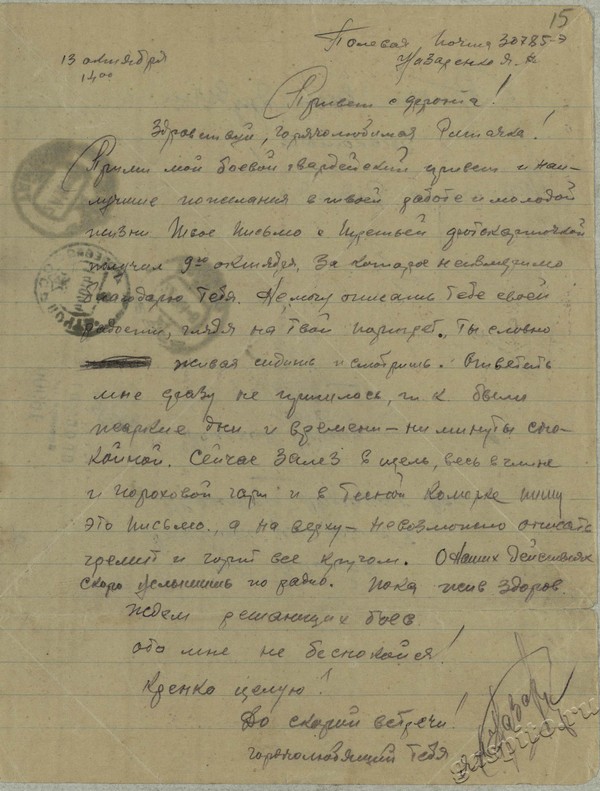 15
Полевая Почта 30785-Э
13 октября
Назаренко Я. А
14⁰⁰
Привет с фронта!
Здравствуй, горячолюбимая Риточка!
Прими мой боевой гвардейский привет и наи-
лучшие пожелания в твоей работе и молодой
жизни Твое письмо с третьей фотокарточкой
получил 9го октября, За которое неизмеримо
благодарю Тебя. Не могу описать Тебе своей
радости, глядя на Твой портрет, Ты словно
живая сидишь и смотришь. Ответить
мне сразу не пришлось, т. к. были
жаркие дни и времени - ни минуты спо-
койной. Сейчас Залез в щель, весь в глине
и пороховой гари и в тесной коморке пишу
это письмо, а на верху - невозможно описать
гремит и горит все кругом. О Наших Действиях
скоро услышишь по радио. Пока жив Здоров.
Ждем решающих боев
обо мне не беспокойся!
Крепко целую!
До скорой встречи!
горячолюбящий Тебя